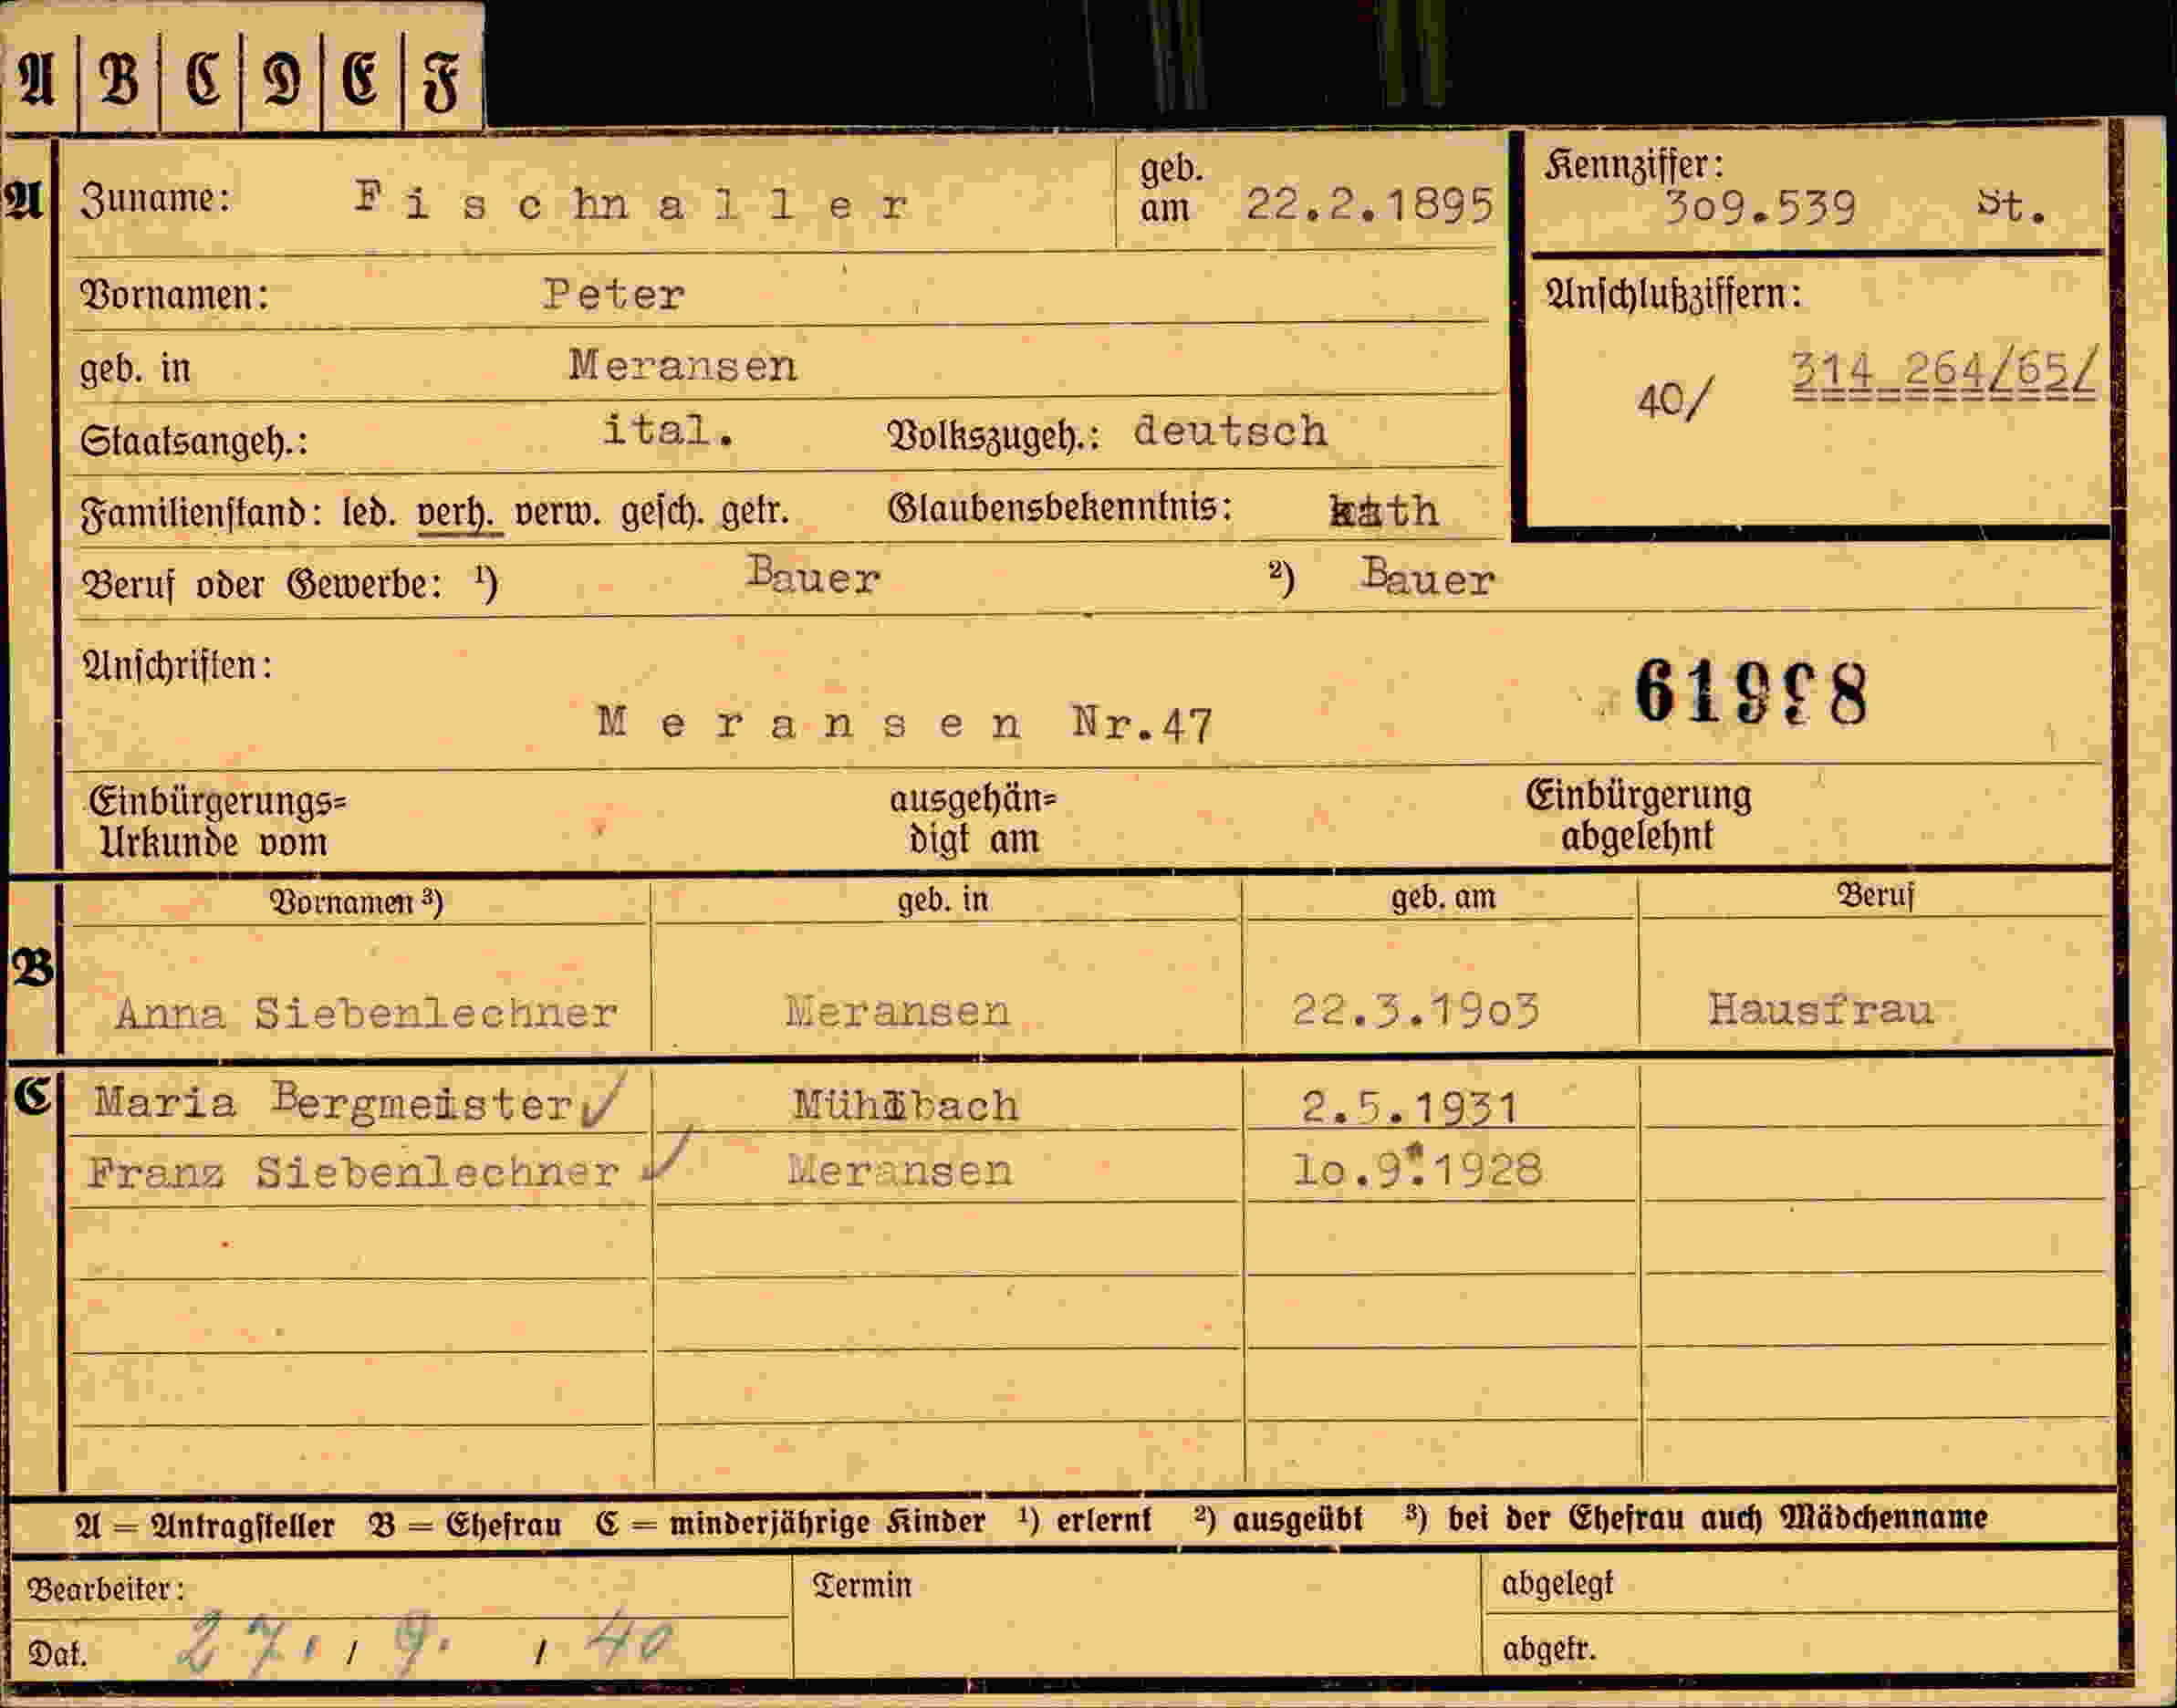 A | B | C | D | E | F
A Zuname: Fischnaller geb. am 22.2.1895
Kennziffer: 309.539 St.
Vornamen: Peter
Anschlußziffern:
40/ 314 264/65/
geb. in Meransen
Staatsangeh.: ital. Volkszugeh.: deutsch
Familienstand: led. verh. verw. gesch. getr. Glaubensbekenntnis: kath
Beruf oder Gewerbe: ¹) Bauer ²) Bauer
Anschriften:
Meransen Nr.47
Einbürgerungs=
Urkunde vom
ausgehän=
digt am
Einbürgerung
abgelehnt
Vornamen ³) geb. in geb. am Beruf
B
Anna Siebenlechner Meransen 22.3.1903 Hausfrau
C Maria Bergmeister Mühlbach 2.5.1931
Franz Siebenlechner Meransen 10.9.1928
A = Antragsteller B = Ehefrau C = minderjährige Kinder ¹) erlernt ²) ausgeübt ³) bei der Ehefrau auch Mädchenname
Bearbeiter: Termin abgelegt
Dat. 27. / 9. / 40 abgetr.